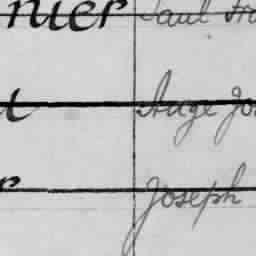 nier Paul
Ange Jos
r Joseph